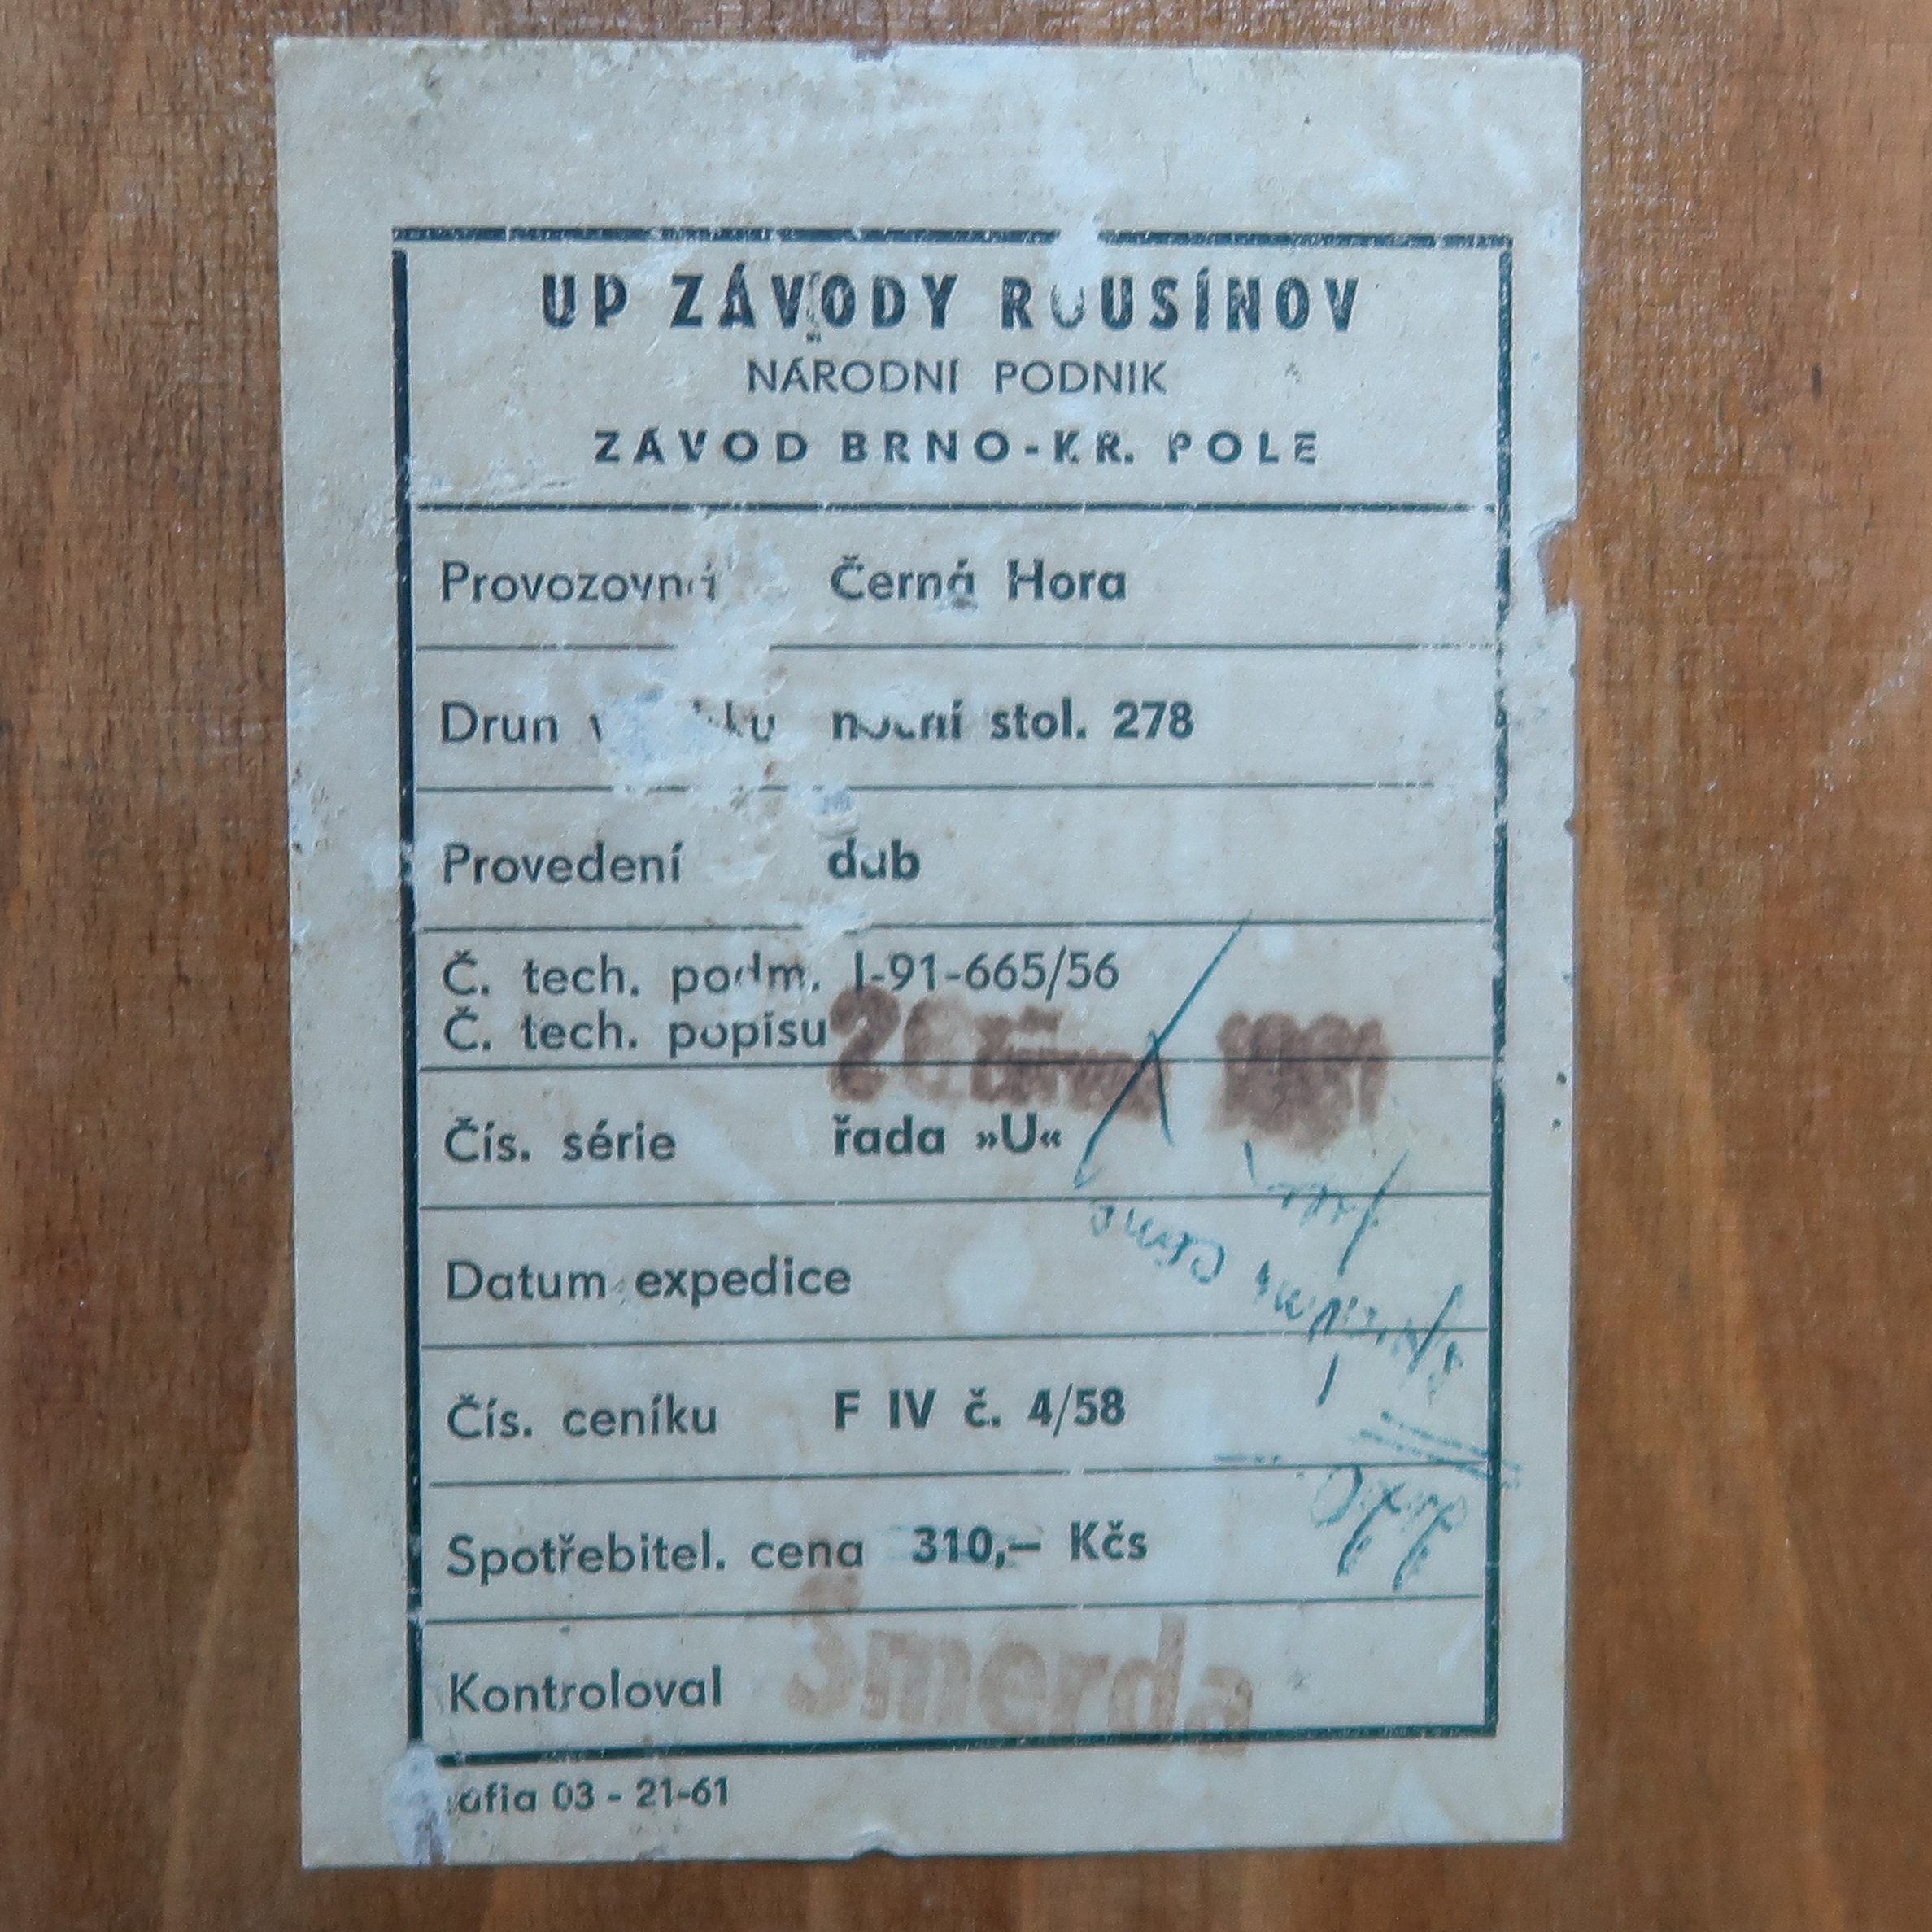 UP ZÁVODY ROUSÍNOV
NÁRODNÍ PODNIK
ZÁVOD BRNO-KR. POLE
Provozovna Černá Hora
Druh výrobku noční stol. 278
Provedení dub
Č. tech. podm. I-91-665/56
Č. tech. popisu
Čís. série řada »U«
Datum expedice
Čís. ceníku F IV č. 4/58
Spotřebitel. cena 310,— Kčs
Kontroloval Šmerda
03 - 21-61